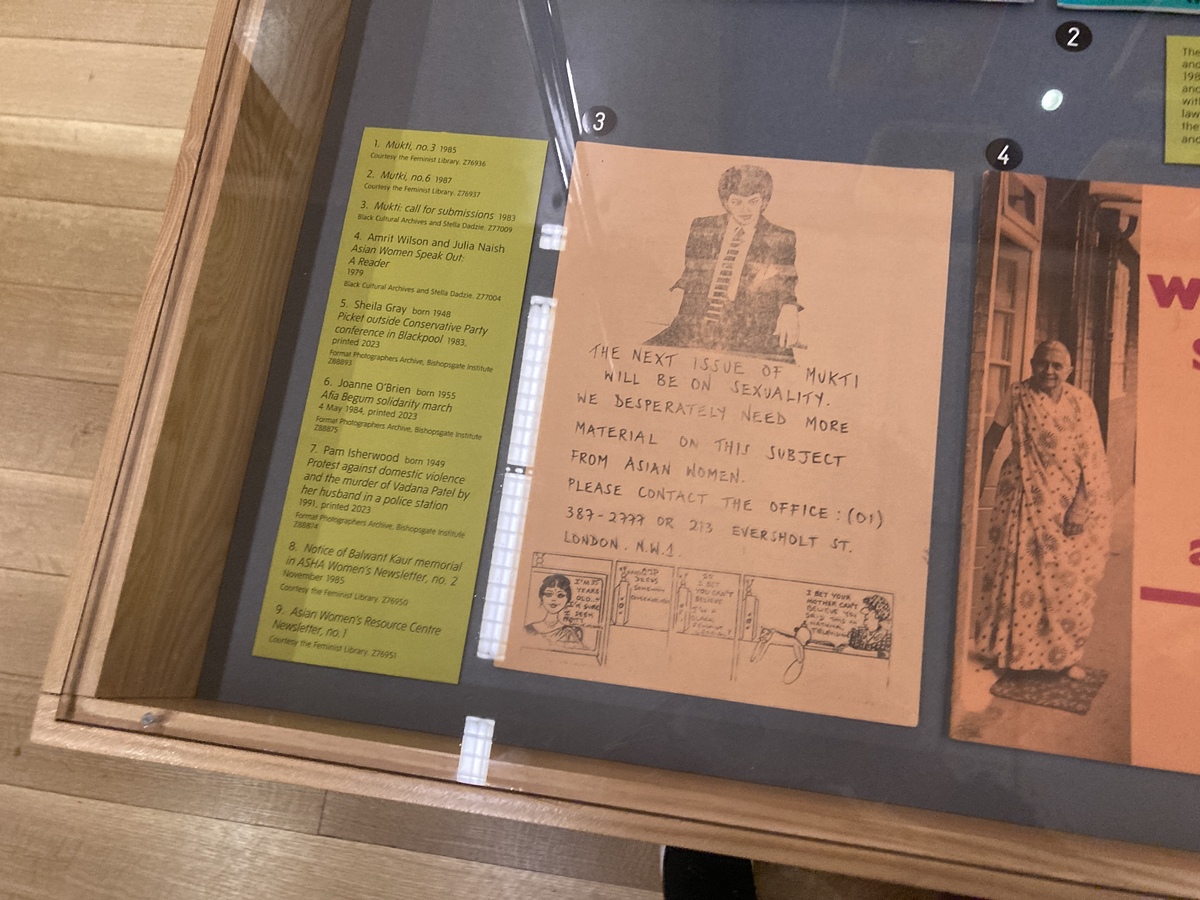 1. Mukti, no.3 1985
Courtesy the Feminist Library. Z76936
2. Mutki, no.6 1987
Courtesy the Feminist Library. Z76937
3. Mukti: call for submissions 1983
Black Cultural Archives and Stella Dadzie. Z77009
4. Amrit Wilson and Julia Naish
Asian Women Speak Out:
A Reader
1979
Black Cultural Archives and Stella Dadzie. Z77004
5. Sheila Gray born 1948
Picket outside Conservative Party
conference in Blackpool 1983,
printed 2023
Format Photographers Archive, Bishopsgate Institute
Z88893
6. Joanne O'Brien born 1955
Afia Begum solidarity march
4 May 1984, printed 2023
Format Photographers Archive, Bishopsgate Institute
Z88875
7. Pam Isherwood born 1949
Protest against domestic violence
and the murder of Vadana Patel by
her husband in a police station
1991, printed 2023
Format Photographers Archive, Bishopsgate Institute
Z88874
8. Notice of Balwant Kaur memorial
in ASHA Women's Newsletter, no. 2
November 1985
Courtesy the Feminist Library. Z76950
9. Asian Women's Resource Centre
Newsletter, no.1
Courtesy the Feminist Library. Z76951
3
THE NEXT ISSUE OF MUKTI
WILL BE ON SEXUALITY.
WE DESPERATELY NEED MORE
MATERIAL ON THIS SUBJECT
FROM ASIAN WOMEN.
PLEASE CONTACT THE OFFICE : (01)
387-2777 OR 213 EVERSHOLT ST.
LONDON. N.W.1.
YEARS
OLD..
I'M SURE
I BET
YOU CAN'T
BELIEVE
I BET YOUR
MOTHER CAN'T
BELIEVE YOU
2
4
The
and
198
and
with
law
the
and
W